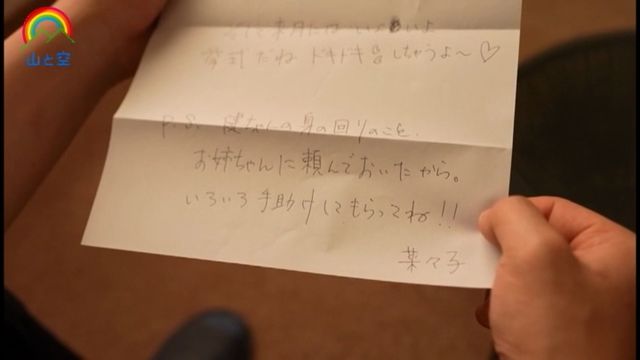 山と空
来月にはいよいよ
挙式だね ドキドキしちゃうよ〜♡
P.S. 健ちゃんの身の回りのこと、
お姉ちゃんに頼んでおいたから。
いろいろ手助けしてもらってね!!
菜々子